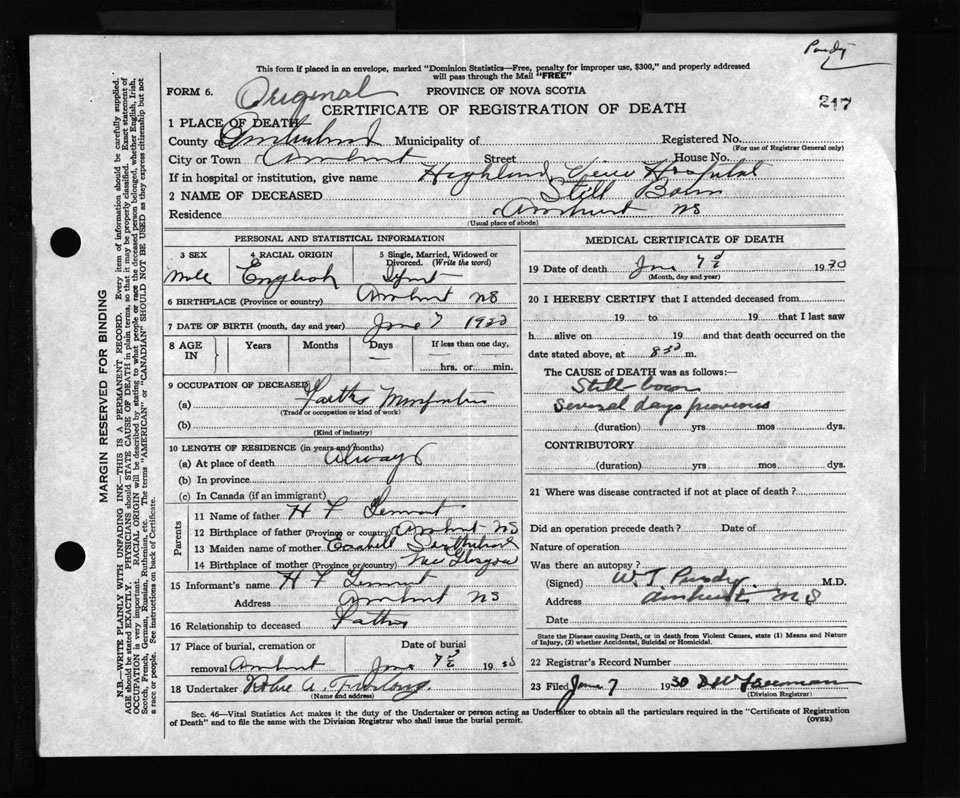 Purdy
This form if placed in an envelope, marked "Dominion Statistics—Free, penalty for improper use, $300," and properly addressed
will pass through the Mail "FREE"
FORM 6. Original PROVINCE OF NOVA SCOTIA
CERTIFICATE OF REGISTRATION OF DEATH 217
1 PLACE OF DEATH
County Cumberland Municipality of Registered No.
(For use of Registrar General only)
City or Town Amherst Street House No.
If in hospital or institution, give name Highland View Hospital
2 NAME OF DECEASED Still Born
Residence Amherst NS
(Usual place of abode)
PERSONAL AND STATISTICAL INFORMATION
3 SEX 4 RACIAL ORIGIN 5 Single, Married, Widowed or
Divorced. (Write the word)
Male English Infant
6 BIRTHPLACE (Province or country) Amherst NS
7 DATE OF BIRTH (month, day and year) June 7 1930
8 AGE IN Years Months Days If less than one day,
hrs. or min.
9 OCCUPATION OF DECEASED
(a)
(Trade or occupation or kind of work)
(b)
(Kind of industry)
10 LENGTH OF RESIDENCE (in years and months)
(a) At place of death Always
(b) In province
(c) In Canada (if an immigrant)
Parents
11 Name of father H
12 Birthplace of father (Province or country) Amherst NS
13 Maiden name of mother
14 Birthplace of mother (Province or country) New Glasgow
15 Informant's name H
Address Amherst NS
16 Relationship to deceased Father
17 Place of burial, cremation or Date of burial
removal Amherst June 7 1930
18 Undertaker A.
(Name and address)
MEDICAL CERTIFICATE OF DEATH
19 Date of death June 7 1930
(Month, day and year)
20 I HEREBY CERTIFY that I attended deceased from
19 to 19 that I last saw
h alive on 19 and that death occurred on
date stated above, at 8 30 m.
The CAUSE of DEATH was as follows:—
Still born
Several days previous
(duration) yrs mos dys.
CONTRIBUTORY
(duration) yrs mos dys.
21 Where was disease contracted if not at place of death ?
Did an operation precede death ? Date of
Nature of operation
Was there an autopsy ?
(Signed) W. T. Purdy. M.D.
Address Amherst NS
Date
State the Disease causing Death, or in death from Violent Causes, state (1) Means and Nature
of Injury, (2) whether Accidental, Suicidal or Homicidal.
22 Registrar's Record Number
23 Filed June 7 1930
(Division Registrar)
Sec. 46—Vital Statistics Act makes it the duty of the Undertaker or person acting as Undertaker to obtain all the particulars required in the "Certificate of Registration
of Death" and to file the same with the Division Registrar who shall issue the burial permit. (OVER)
MARGIN RESERVED FOR BINDING
N.B.—WRITE PLAINLY WITH UNFADING INK—THIS IS A PERMANENT RECORD. Every item of information should be carefully supplied.
AGE should be stated EXACTLY. PHYSICIANS should STATE CAUSE OF DEATH in plain terms, so that it may be properly classified. Exact statement of
OCCUPATION is very important. RACIAL ORIGIN will be described by stating to what people or race the deceased person belonged, whether English, Irish,
Scotch, French, German, Russian, Ruthenian, etc. The terms "AMERICAN" or "CANADIAN" SHOULD NOT BE USED as they express citizenship but not
a race or people. See instructions on back of Certificate.